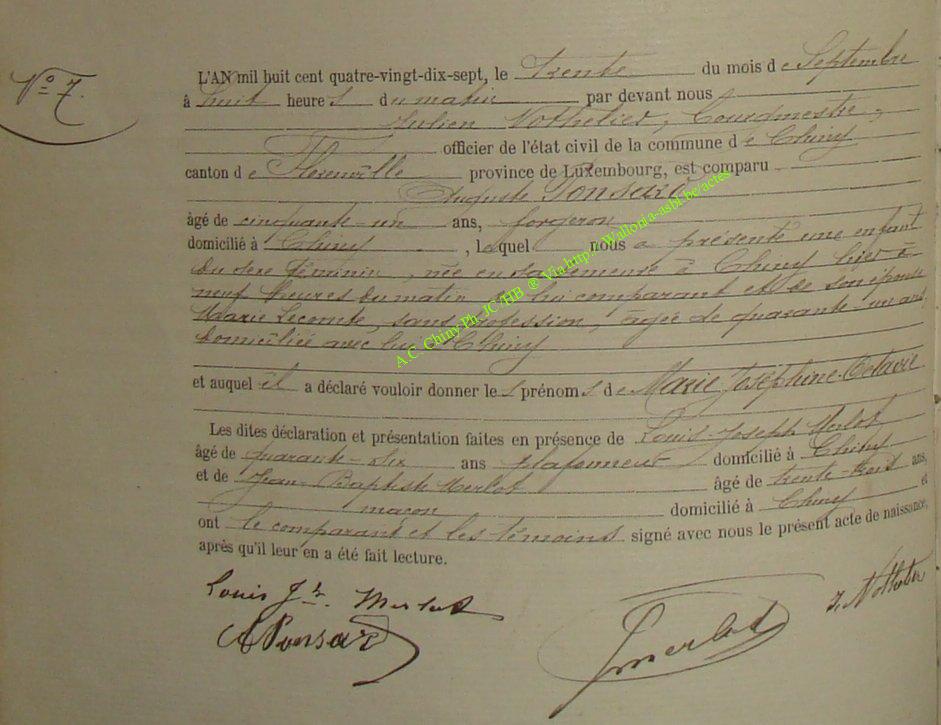 N° 7.
L'AN mil huit cent quatre-vingt-dix-sept, le Trente du mois de Septembre
à huit heures du matin par devant nous
Julien Nothelier, Bourgmestre,
officier de l'état civil de la commune de Chiny
canton de Florenville province de Luxembourg, est comparu
Auguste Ponsard
âgé de cinquante-un ans, forgeron
domicilié à Chiny, lequel nous a présenté une enfant
du sexe féminin, née en sa demeure à Chiny hier à
neuf heures du matin de lui comparant et de son épouse
Marie Lecomte, sans profession, âgée de quarante-un ans,
domiciliée avec lui à Chiny
et auquel il a déclaré vouloir donner les prénoms de Marie Joséphine Octavie
Les dites déclaration et présentation faites en présence de Louis-Joseph Merlot
âgé de quarante-six ans plafonneur domicilié à Chiny
et de Jean-Baptiste Merlot âgé de trente-trois ans,
maçon domicilié à Chiny et
ont le comparant et les témoins signé avec nous le présent acte de naissance,
après qu'il leur en a été fait lecture.
Louis Jh. Merlot
J. Nothelier
A Ponsard
J merlot
A.C. Chiny Ph. JC/HB ® Via http://Wallonia-asbl.be/actes